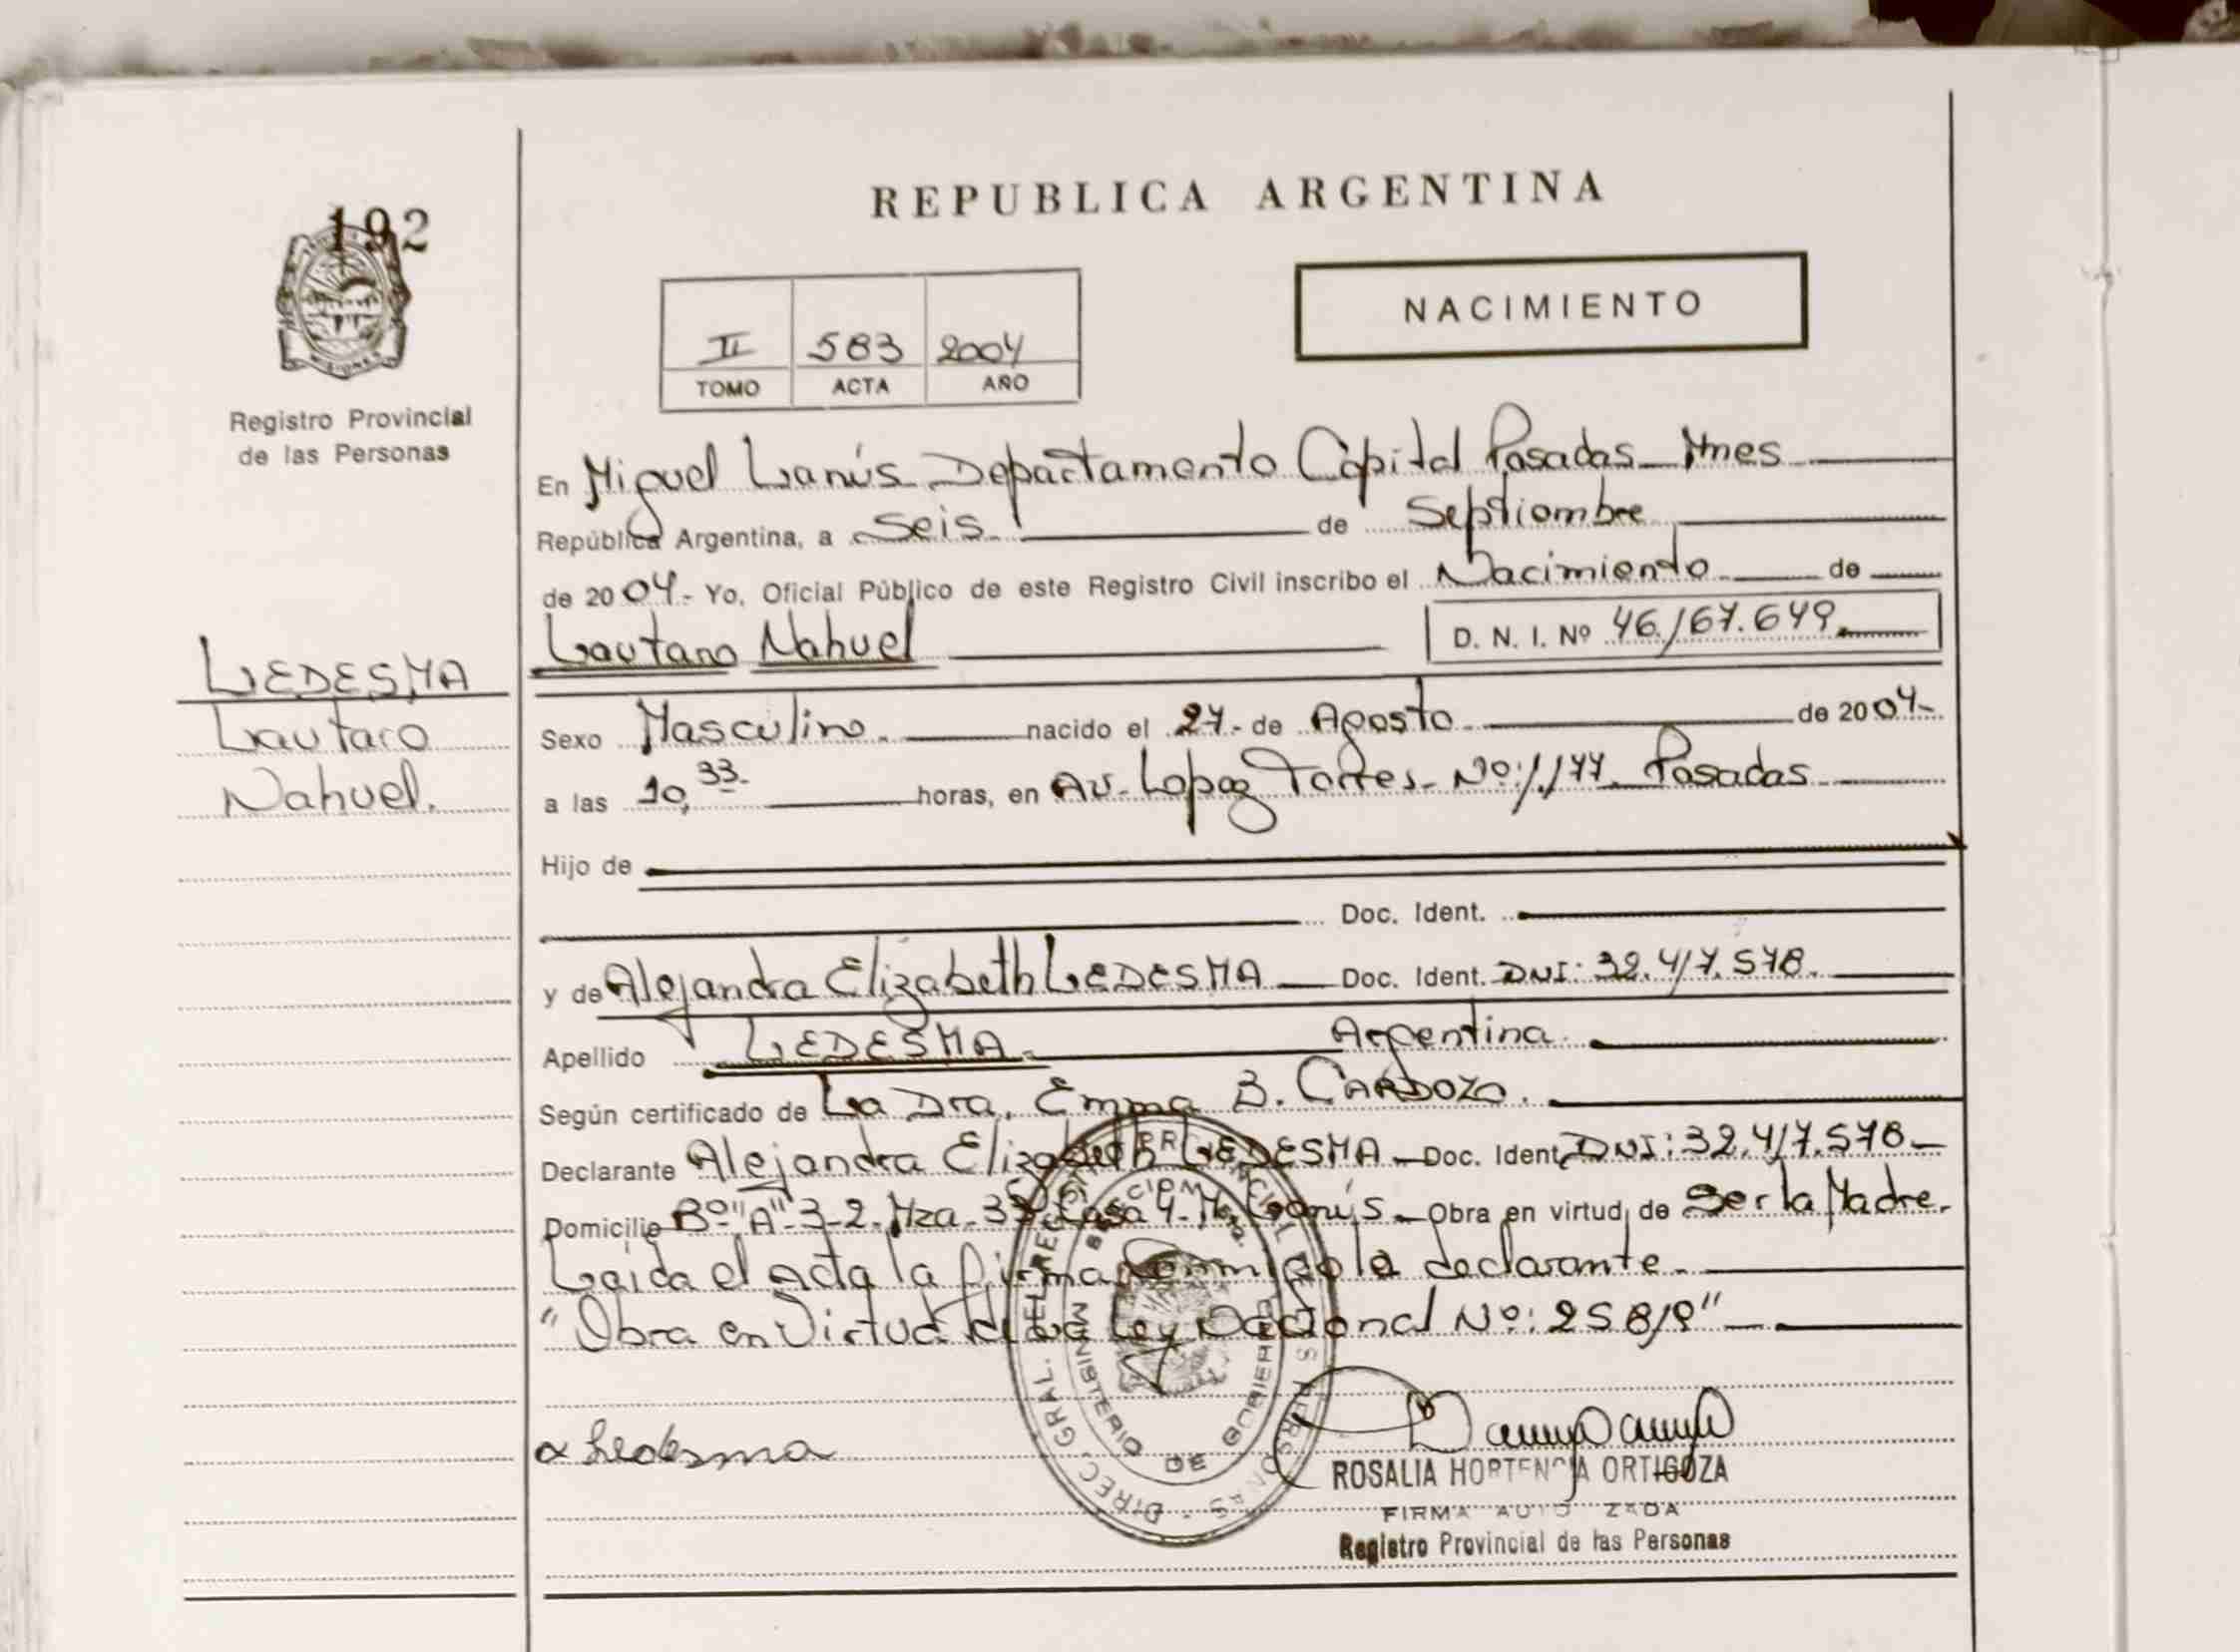 REPUBLICA ARGENTINA
192
NACIMIENTO
II 583 2004
TOMO ACTA AÑO
Registro Provincial
de las Personas
En Miguel Lanús Departamento Capital Posadas Mnes
República Argentina, a Seis de Septiembre
de 2004.- Yo, Oficial Público de este Registro Civil inscribo el Nacimiento de
Lautaro Nahuel D. N. I. Nº 46.167.649.
LEDESMA
Lautaro
Nahuel.
Sexo Masculino. nacido el 27.- de Agosto de 2004-
a las 10,33- horas, en Av. Lopez Torres- Nº: 1.177. Posadas
Hijo de
Doc. Ident.
y de Alejandra Elizabeth LEDESMA Doc. Ident. DNI: 32.417.578.
Apellido LEDESMA. Argentina.
Según certificado de La Dra. Emma B. CARDOZO.
Declarante Alejandra Elizabeth LEDESMA Doc. Ident. DNI: 32.417.578-
Domicilio Bº "A" 3-2. Mza. Casa 4- Lanús Obra en virtud de Ser la Madre.
Leida el Acta la firma conmigo la declarante.
"Obra en Virtud de la Ley Nacional Nº: 25819"
DIREC. GRAL. DEL REGISTRO PROVINCIAL DE LAS PERSONAS
MINISTERIO DE GOBIERNO
Ledesma
ROSALIA HORTENCIA ORTIGOZA
FIRMA AUTORIZADA
Registro Provincial de las Personas